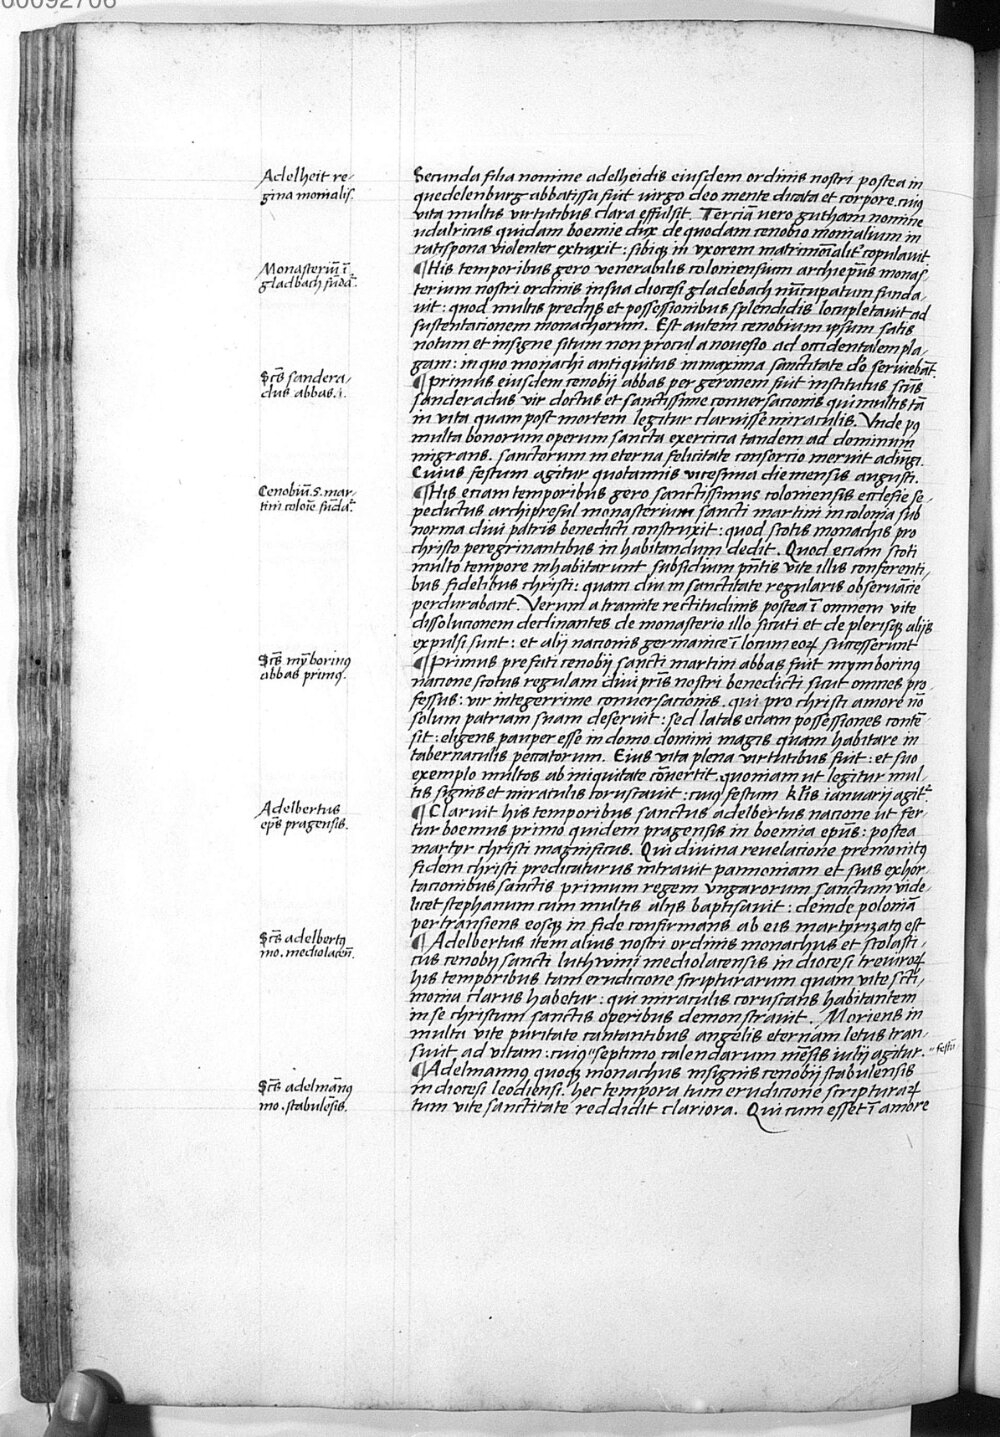 00092706
Adelheit re-
gina monialis.
Secunda filia nomine adelheidis eiusdem ordinis nostri postea in
quedelenburg abbatissa fuit virgo deo mente dicata et corpore. cuiꝰ
vita multis virtutibus clara effulsit. Terciā vero gutham nomine
udalricus quidam boemie dux de quodam cenobio monialium in
ratispona violenter extraxit: sibiqꝫ in vxorem matrimōialit' copulauit
Monasteriū ī
gladbach fūdat'.
¶His temporibus gero venerabilis coloniensium archiep̄us monas-
terium nostri ordinis in sua diocesi gladebach nūcupatum funda-
uit: quod multis predijs et possessionibus splendidis locupletauit ad
sustentacionem monachorum. Est autem cenobium ipsum satis
notum et insigne situm non procul a nouesio ad occidentalem pla-
gam: in quo monachi antiquitus in maxima sanctitate d̄o seruiebāt.
Sc̄s sandera-
dus abbas. i.
¶Primus eiusdem cenobij abbas per geronem fuit institutus sc̄us
sanderadus vir doctus et sanctissime conuersacionis qui multis tā
in vita quam post mortem legitur claruisse miraculis. Vnde pꝰ
multa bonorum operum sancta exercicia tandem ad dominum
migrans. sanctorum in eterna felicitate consorcio meruit adiūgi.
Cuius festum agitur quotannis vicesima die mensis augusti.
Cenobiū. S. mar-
tini coloīe fūdat'.
¶His eciam temporibus gero sanctissimus coloniensis ecclesie se-
pedictus archipresul monasterium sancti martini in colonia sub
norma diui patris benedicti construxit: quod scotis monachis pro
christo peregrinantibus in habitandum dedit. Quod eciam scoti
multo tempore inhabitarunt subsidium pn̄tis vite illis conferenti-
bus fidelibus christi: quam diu in sanctitate regularis obseruācie
perdurabant. Verum a tramite rectitudinis postea ī omnem vite
dissolucionem declinantes de monasterio illo sicuti et de plerisqꝫ alijs
expulsi sunt: et alij nacionis germanice ī locum eoꝝ successerunt
Sc̄s mȳborinꝰ
abbas primꝰ.
¶Primus prefati cenobij sancti martini abbas fuit mymborinꝰ
nacione scotus regulam diui pr̄is nostri benedicti sicut omnes pro-
fessus: vir integerrime conuersacionis. qui pro christi amore nō
solum patriam suam deseruit: sed latas eciam possessiones contē-
sit: eligens pauper esse in domo domini magis quam habitare in
tabernaculis peccatorum. Eius vita plena virtutibus fuit: et suo
exemplo multos ab iniquitate cōuertit. quoniam ut legitur mul-
tis signis et miraculis coruscauit: cuiꝰ festum kl'is ianuarij agit'.
Adelbertus
ep̄s pragensis.
¶Claruit his temporibus sanctus adelbertus nacione ut fer-
tur boemus primo quidem pragensis in boemia ep̄us: postea
martyr christi magnificus. Qui diuina reuelacione premonitꝰ
fidem christi predicaturus intrauit pannoniam et suis exhor-
tacionibus sanctis primum regem vngarorum sanctum vide-
licet stephanum cum multis alijs baptisauit: deinde poloniā
pertransiens eosqꝫ in fide confirmans ab eis martyrizatꝰ est
Sc̄s adelbertꝰ
mo. mediolaceñ.
¶Adelbertus item alius nostri ordinis monachus et scolasti-
cus cenobij sancti luthwini mediolacensis in diocesi treuiroꝝ
his temporibus tam erudicione scripturarum quam vite scti-
monia clarus habetur: qui miraculis coruscans habitantem
in se christum sanctis operibus demonstrauit. Moriens in
multa vite puritate cantantibus angelis eternam letus tran-
siuit ad vitam: cuiꝰ "septimo calendarum mēsis iulij agitur. "festū
Sc̄s adelmānꝰ
mo. stabulēsis.
¶Adelmannꝰ quoqꝫ monachus insignis cenobij stabulensis
in diocesi leodiensi. hec tempora tum erudicione scripturaꝝ
tum vite sanctitate reddidit clariora. Qui cum esset ī amore